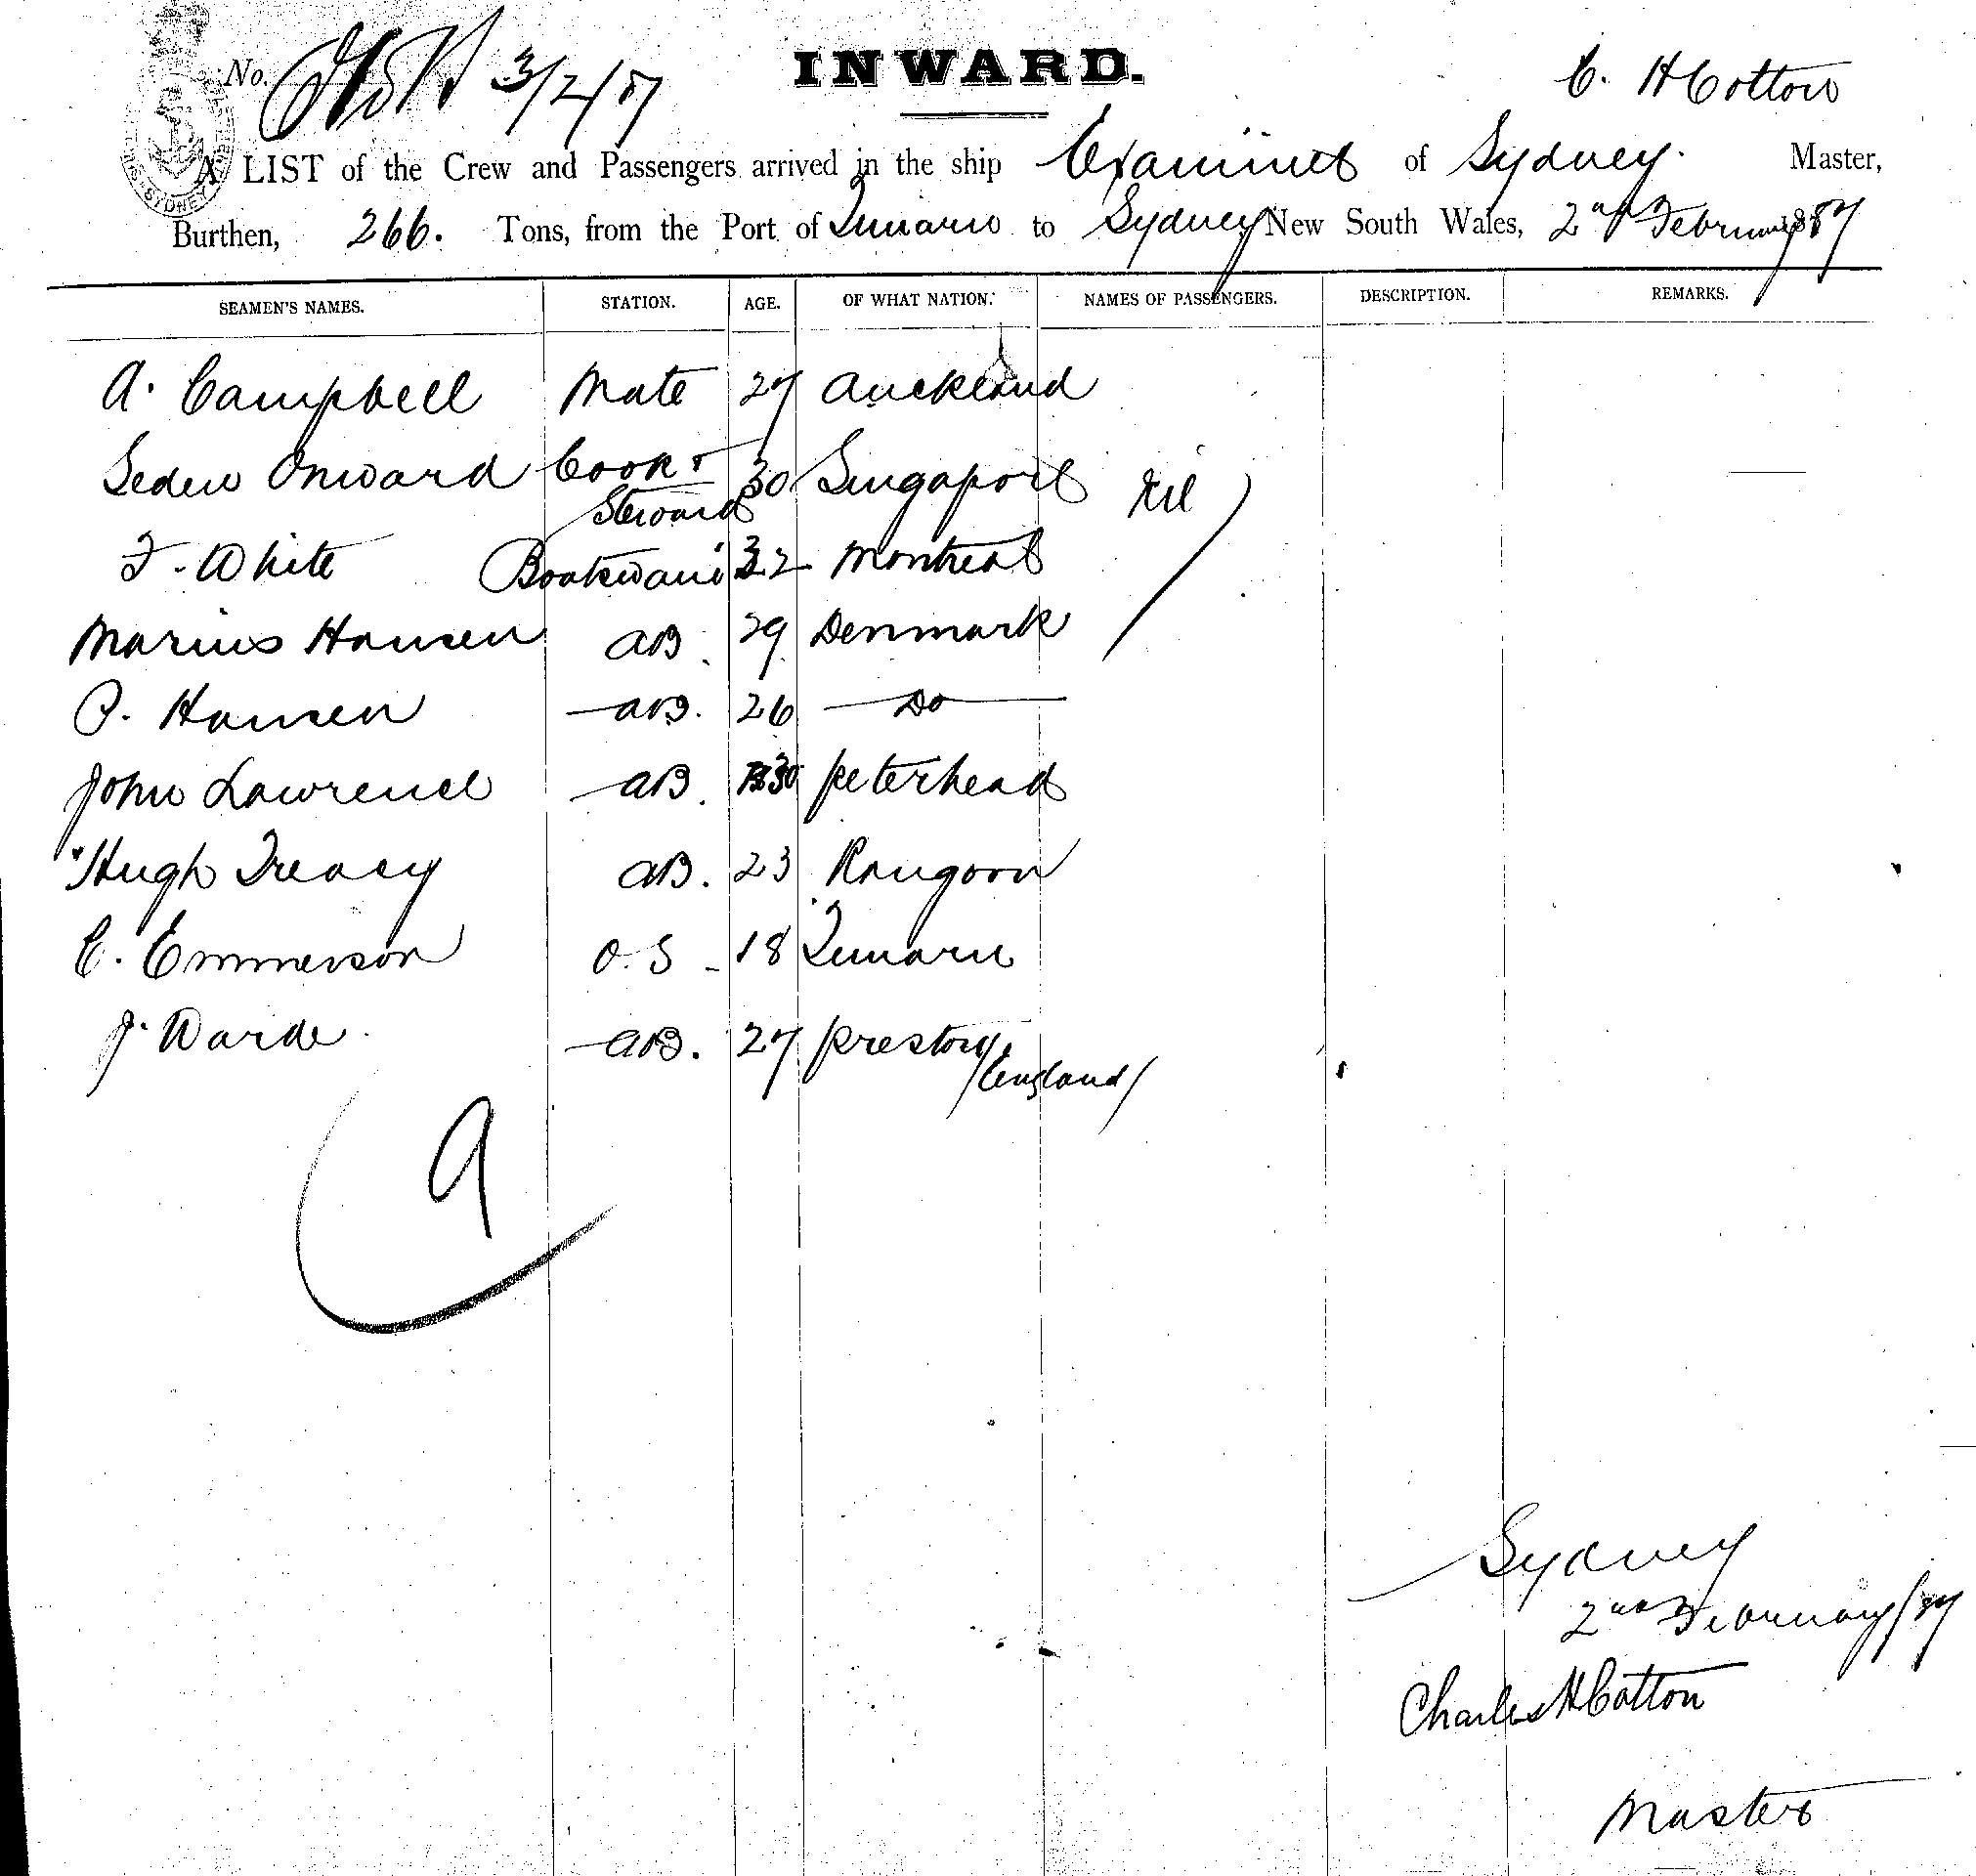 No. 3/2/87
INWARD.
C. H Cotton
A LIST of the Crew and Passengers arrived in the ship Examiner of Sydney. Master,
Burthen, 266. Tons, from the Port of Timaru to Sydney New South Wales, 2nd February 1887
SEAMEN'S NAMES. STATION. AGE. OF WHAT NATION. NAMES OF PASSENGERS. DESCRIPTION. REMARKS.
A. Campbell Mate 27 Auckland
Onward Cook & Steward 30 Singapore Nil
F. White Boatswain 32 Montreal
Marius Hansen AB. 29 Denmark
P. Hansen AB. 26 Do
John Lawrence AB. 30 Peterhead
Hugh Treacy AB. 23 Rangoon
C. Emmerson O.S 18 Timaru
J. Warde AB. 27 Preston /England/
9
Sydney
2nd February /87
Charles H Cotton
Master